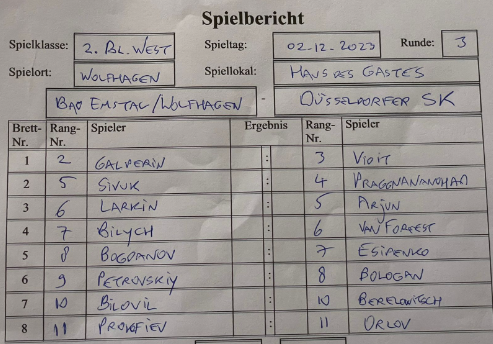 Spielbericht
Spielklasse: 2. BL. WEST Spieltag: 02-12-2023 Runde: 3
Spielort: WOLFHAGEN Spiellokal: HAUS DES GASTES
BAD EMSTAL/WOLFHAGEN - DÜSSELDORFER SK
Brett-Nr. Rang-Nr. Spieler Ergebnis Rang-Nr. Spieler
1 2 GALPERIN : 3 VIDIT
2 5 SIVUK : 4 PRAGGNANANDHAA
3 6 LARKIN : 5 ARJUN
4 7 BILYCH : 6 VAN FOREEST
5 8 BOGDANOV : 7 ESIPENKO
6 9 PETROVSKIY : 8 BOLOGAN
7 10 BILOVIL : 10 BERELOWITSCH
8 11 PROKOFIEV : 11 ORLOV